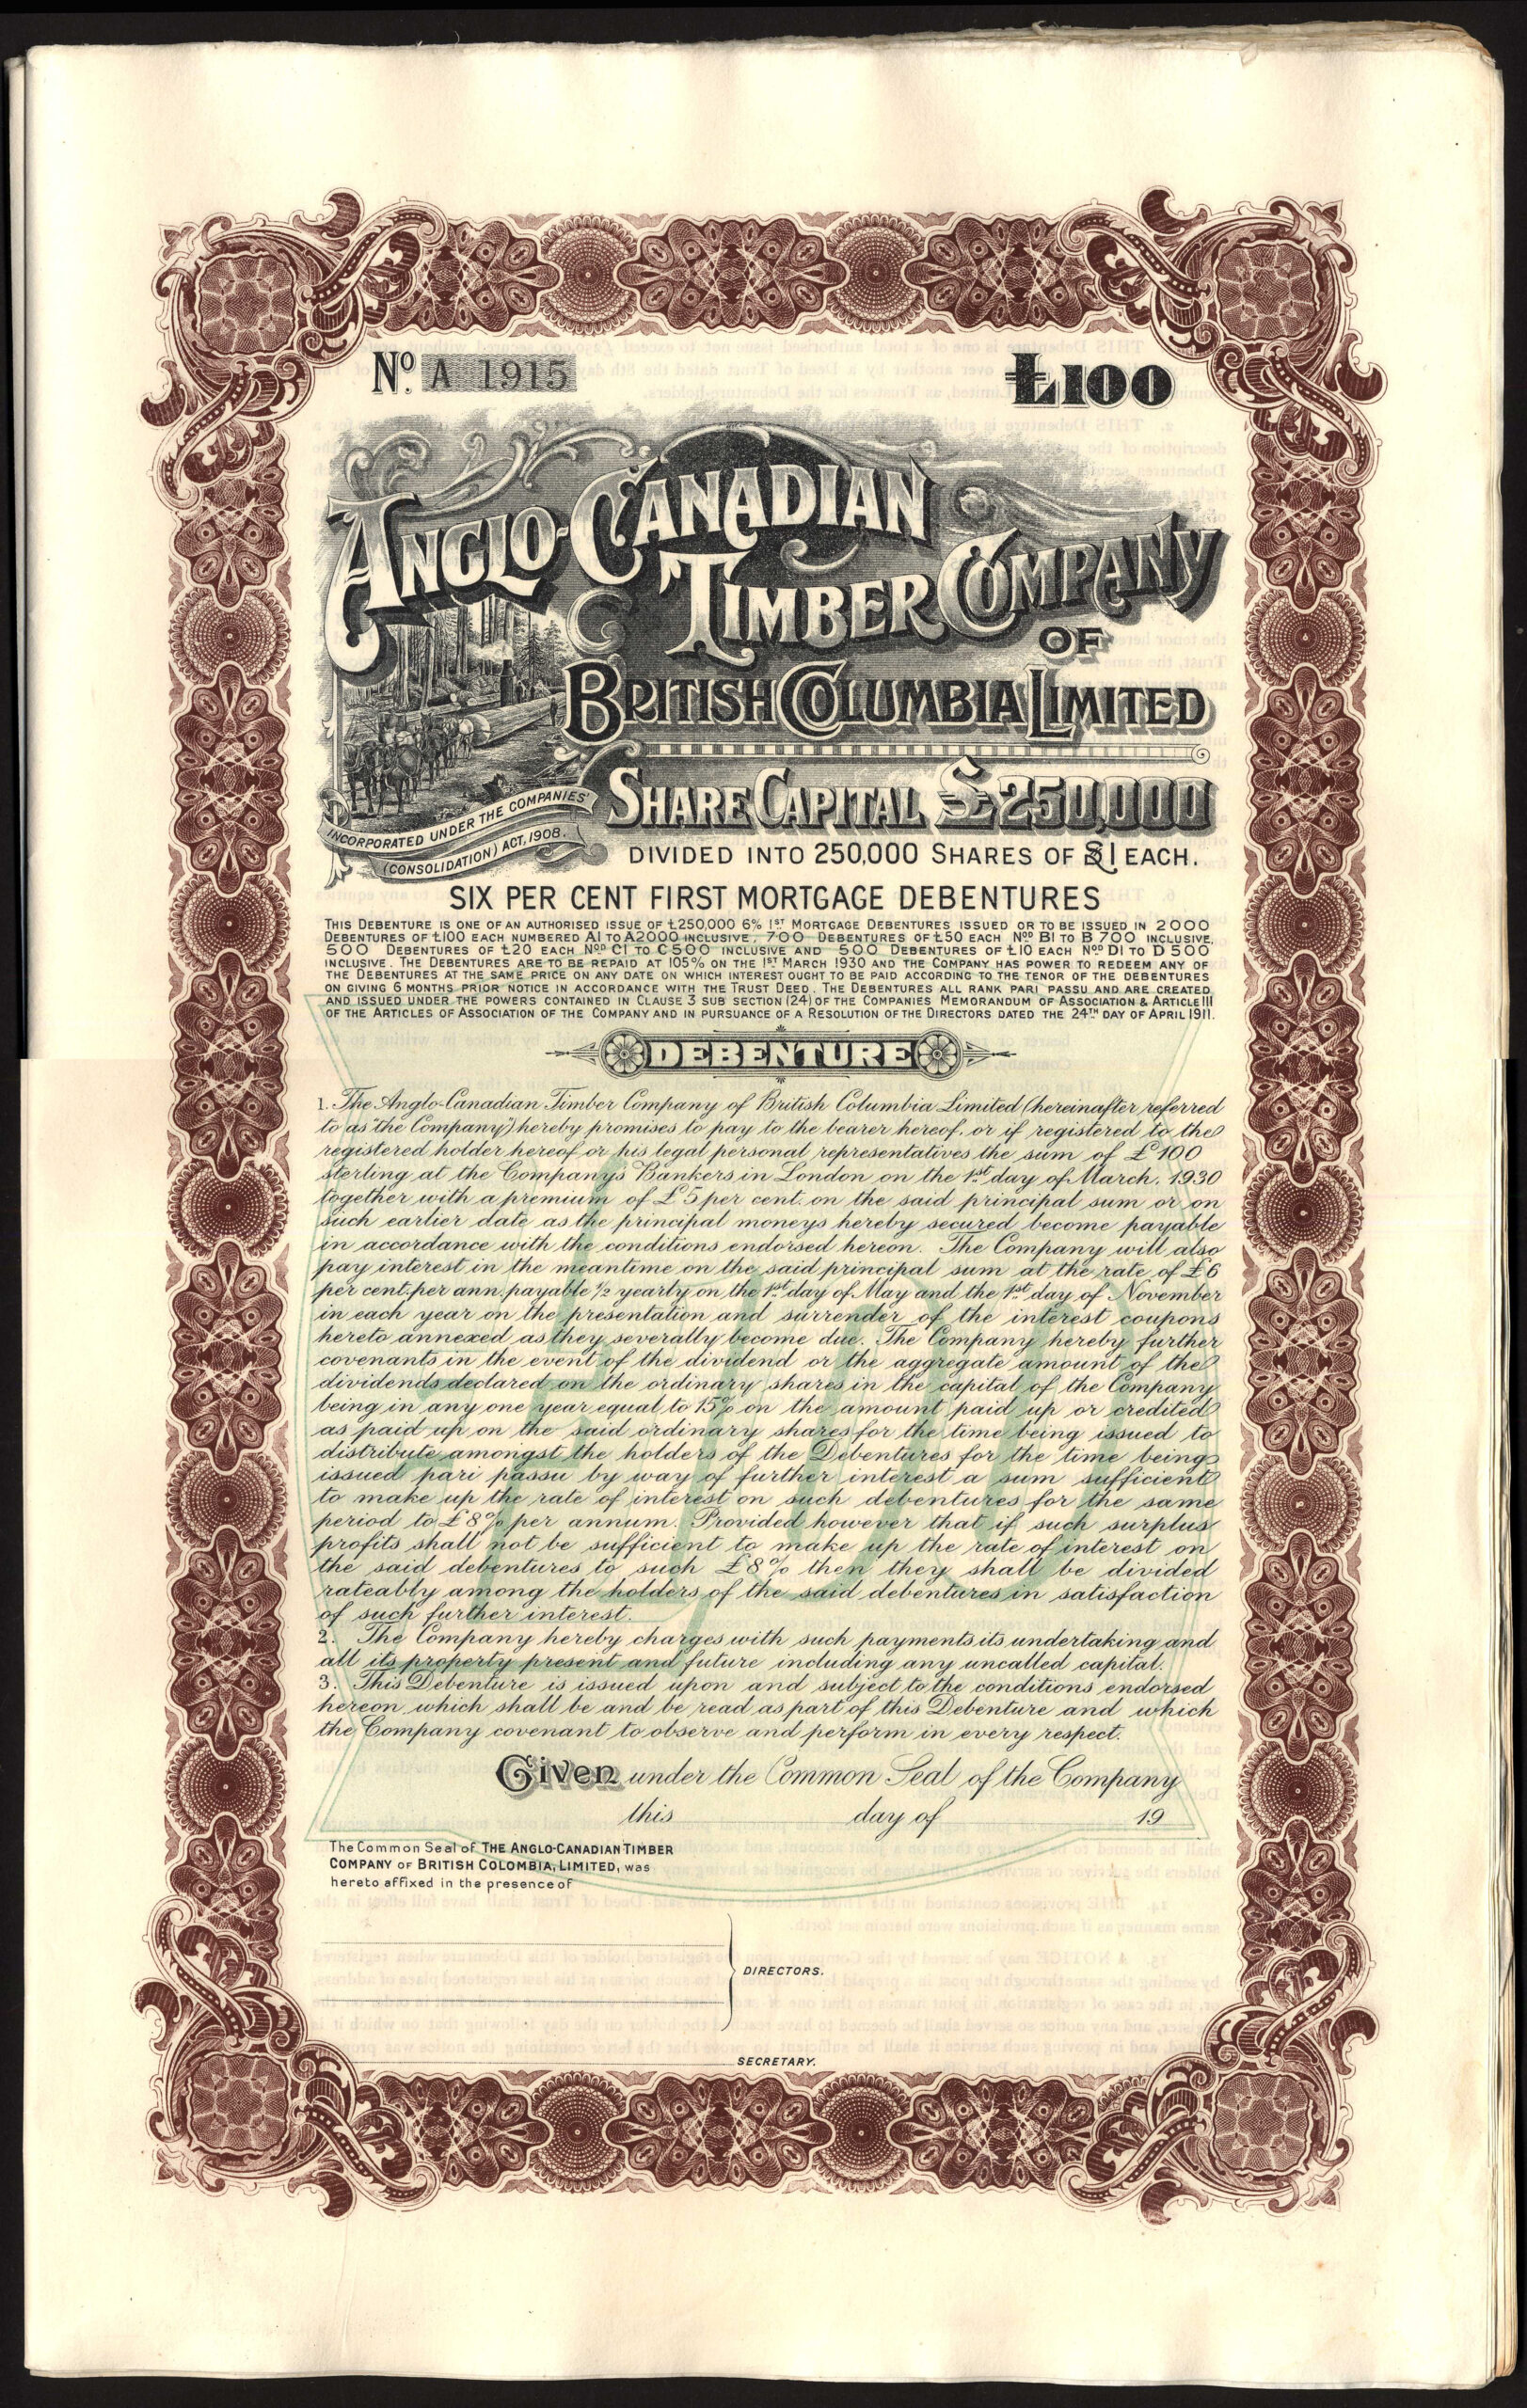 No. A 1915
£100
ANGLO-CANADIAN
TIMBER COMPANY
OF
BRITISH COLUMBIA LIMITED
SHARE CAPITAL £250,000
INCORPORATED UNDER THE COMPANIES'
(CONSOLIDATION) ACT, 1908.
DIVIDED INTO 250,000 SHARES OF £1 EACH.
SIX PER CENT FIRST MORTGAGE DEBENTURES
THIS DEBENTURE IS ONE OF AN AUTHORISED ISSUE OF £250,000 6% 1ST MORTGAGE DEBENTURES ISSUED OR TO BE ISSUED IN 2000
DEBENTURES OF £100 EACH NUMBERED A1 TO A2000 INCLUSIVE, 700 DEBENTURES OF £50 EACH NOD B1 TO B 700 INCLUSIVE,
500 DEBENTURES OF £20 EACH NOD C1 TO C 500 INCLUSIVE AND 500 DEBENTURES OF £10 EACH NOD D1 TO D 500
INCLUSIVE. THE DEBENTURES ARE TO BE REPAID AT 105% ON THE 1ST MARCH 1930 AND THE COMPANY HAS POWER TO REDEEM ANY OF
THE DEBENTURES AT THE SAME PRICE ON ANY DATE ON WHICH INTEREST OUGHT TO BE PAID ACCORDING TO THE TENOR OF THE DEBENTURES
ON GIVING 6 MONTHS PRIOR NOTICE IN ACCORDANCE WITH THE TRUST DEED. THE DEBENTURES ALL RANK PARI PASSU AND ARE CREATED
AND ISSUED UNDER THE POWERS CONTAINED IN CLAUSE 3 SUB SECTION (24) OF THE COMPANIES MEMORANDUM OF ASSOCIATION & ARTICLE 111
OF THE ARTICLES OF ASSOCIATION OF THE COMPANY AND IN PURSUANCE OF A RESOLUTION OF THE DIRECTORS DATED THE 24TH DAY OF APRIL 1911.
DEBENTURE
1. The Anglo-Canadian Timber Company of British Columbia Limited (hereinafter referred
to as "the Company") hereby promises to pay to the bearer hereof, or if registered to the
registered holder hereof or his legal personal representatives the sum of £100
sterling at the Company's Bankers in London on the 1st day of March, 1930
together with a premium of £5 per cent. on the said principal sum or on
such earlier date as the principal moneys hereby secured become payable
in accordance with the conditions endorsed hereon. The Company will also
pay interest in the meantime on the said principal sum at the rate of £6
per cent. per ann. payable ½ yearly on the 1st day of May and the 1st day of November
in each year on the presentation and surrender of the interest coupons
hereto annexed as they severally become due. The Company hereby further
covenants in the event of the dividend or the aggregate amount of the
dividends declared on the ordinary shares in the capital of the Company
being in any one year equal to 15% on the amount paid up or credited
as paid up on the said ordinary shares for the time being issued to
distribute amongst the holders of the Debentures for the time being
issued pari passu by way of further interest a sum sufficient
to make up the rate of interest on such debentures for the same
period to £8% per annum. Provided however that if such surplus
profits shall not be sufficient to make up the rate of interest on
the said debentures to such £8% then they shall be divided
rateably among the holders of the said debentures in satisfaction
of such further interest.
2. The Company hereby charges with such payments its undertaking and
all its property present and future including any uncalled capital.
3. This Debenture is issued upon and subject to the conditions endorsed
hereon which shall be and be read as part of this Debenture and which
the Company covenant to observe and perform in every respect.
Given under the Common Seal of the Company
this day of 19
The Common Seal of THE ANGLO-CANADIAN TIMBER
COMPANY OF BRITISH COLOMBIA, LIMITED, was
hereto affixed in the presence of
DIRECTORS.
SECRETARY.